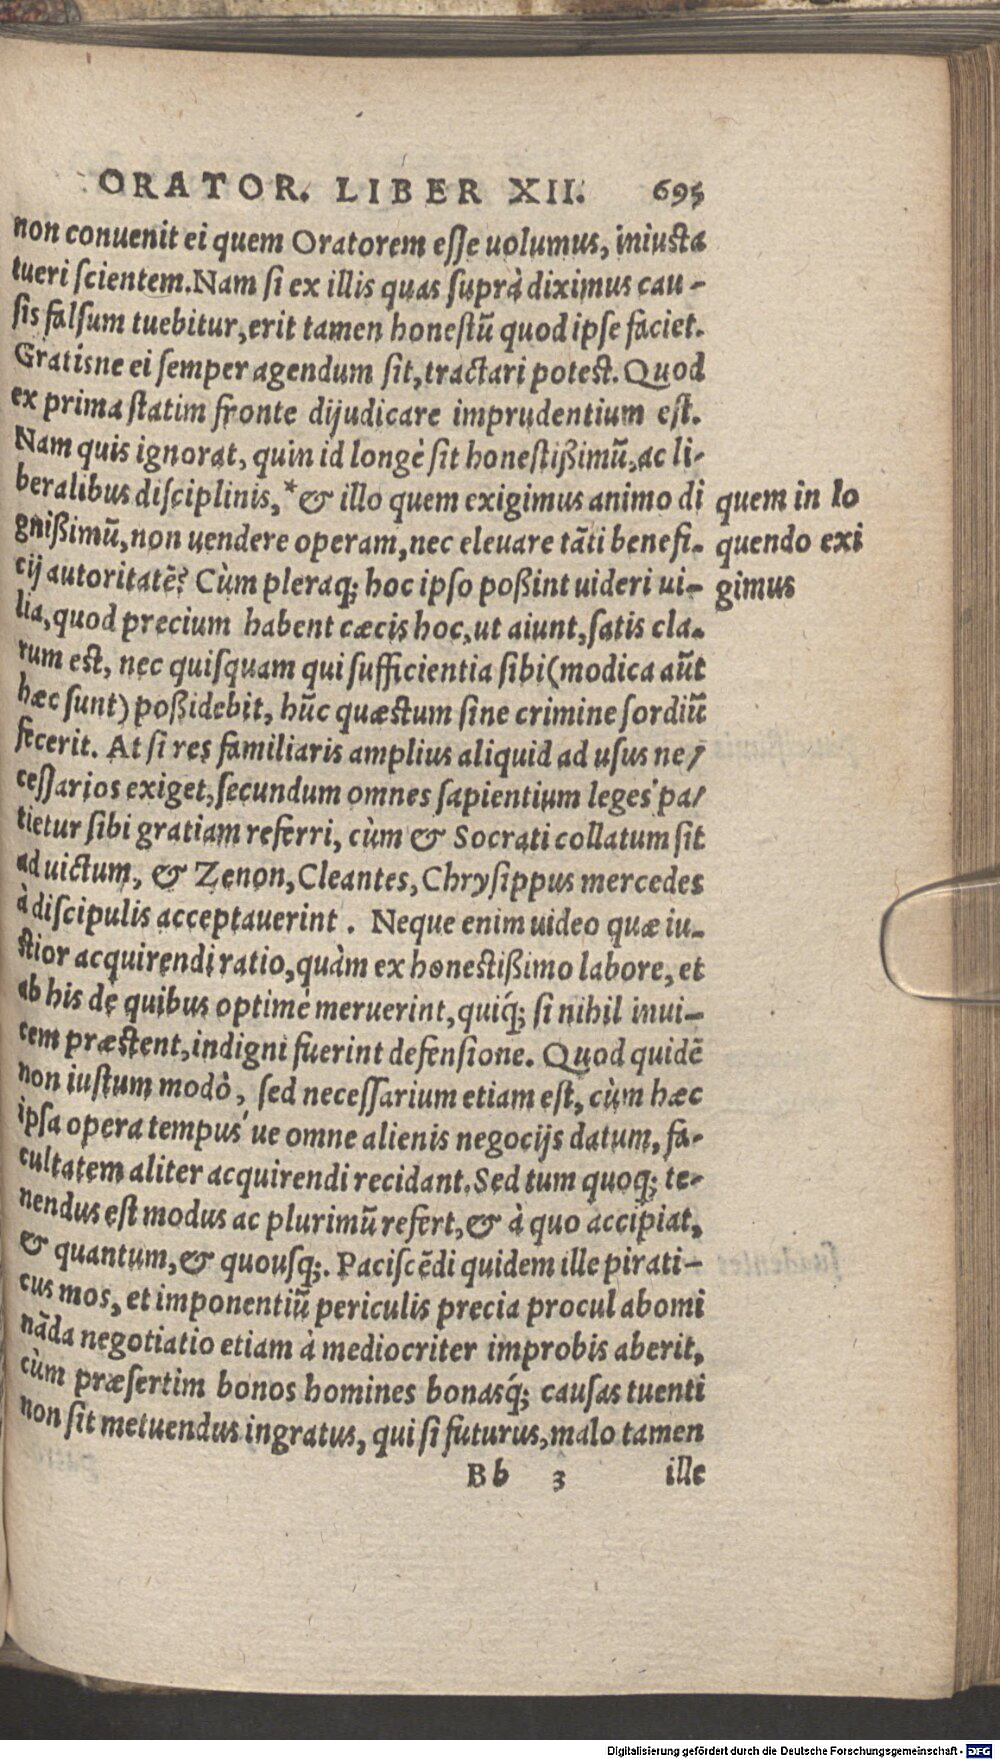 ORATOR. LIBER XII. 695
non conuenit ei quem Oratorem esse uolumus, iniusta
tueri scientem. Nam si ex illis quas suprà diximus cau-
sis falsum tuebitur, erit tamen honestū quod ipse faciet.
Gratisne ei semper agendum sit, tractari potest. Quod
ex prima statim fronte dijudicare imprudentium est.
Nam quis ignorat, quin id longè sit honestißimū, ac li-
beralibus disciplinis, * & illo quem exigimus animo di
gnißimū, non uendere operam, nec eleuare tāti benefi-
cij autoritatē? Cùm pleraq; hoc ipso poßint uideri ui-
lia, quod precium habent cæcis hoc, ut aiunt, satis cla-
rum est, nec quisquam qui sufficientia sibi (modica aūt
hæc sunt) poßidebit, hūc quæstum sine crimine sordiū
fecerit. At si res familiaris amplius aliquid ad usus ne/
cessarios exiget, secundum omnes sapientium leges pa/
tietur sibi gratiam referri, cùm & Socrati collatum sit
ad uictum, & Zenon, Cleantes, Chrysippus mercedes
à discipulis acceptauerint. Neque enim uideo quæ iu-
stior acquirendi ratio, quàm ex honestißimo labore, et
ab his de quibus optimè meruerint, quiq́; si nihil inui-
cem præstent, indigni fuerint defensione. Quod quidē
non iustum modò, sed necessarium etiam est, cùm hæc
ipsa opera tempus'ue omne alienis negocijs datum, fa-
cultatem aliter acquirendi recidant. Sed tum quoq; te-
nendus est modus ac plurimū refert, & à quo accipiat,
& quantum, & quousq;. Paciscēdi quidem ille pirati-
cus mos, et imponentiū periculis precia procul abomi
nāda negotiatio etiam à mediocriter improbis aberit,
cùm præsertim bonos homines bonasq́; causas tuenti
non sit metuendus ingratus, qui si futurus, malo tamen
Bb 3 ille
quem in lo
quendo exi
gimus
Digitalisierung gefördert durch die Deutsche Forschungsgemeinschaft - DFG